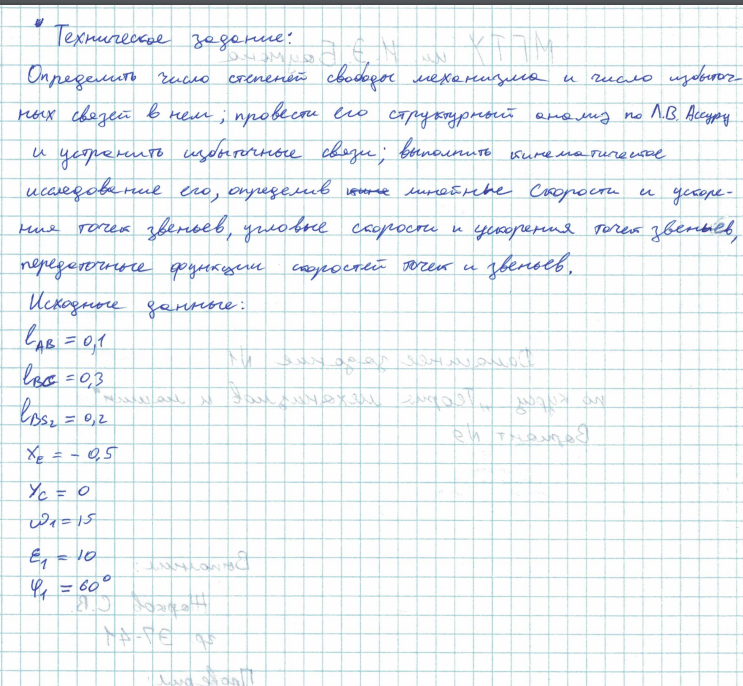 Техническое задание:
Определить число степеней свободы механизма и число избыточ-
ных связей в нем; провести его структурный анализ по Л.В. Ассуру
и устранить избыточные связи; выполнить кинематическое
исследование его, определив линейные скорости и ускоре-
ния точек звеньев, угловые скорости и ускорения точек звеньев,
передаточные функции скоростей точек и звеньев.
Исходные данные:
l_AB = 0,1
l_BC = 0,3
l_BS2 = 0,2
X_E = - 0,5
Y_C = 0
ω1 = 15
ε1 = 10
φ1 = 60°